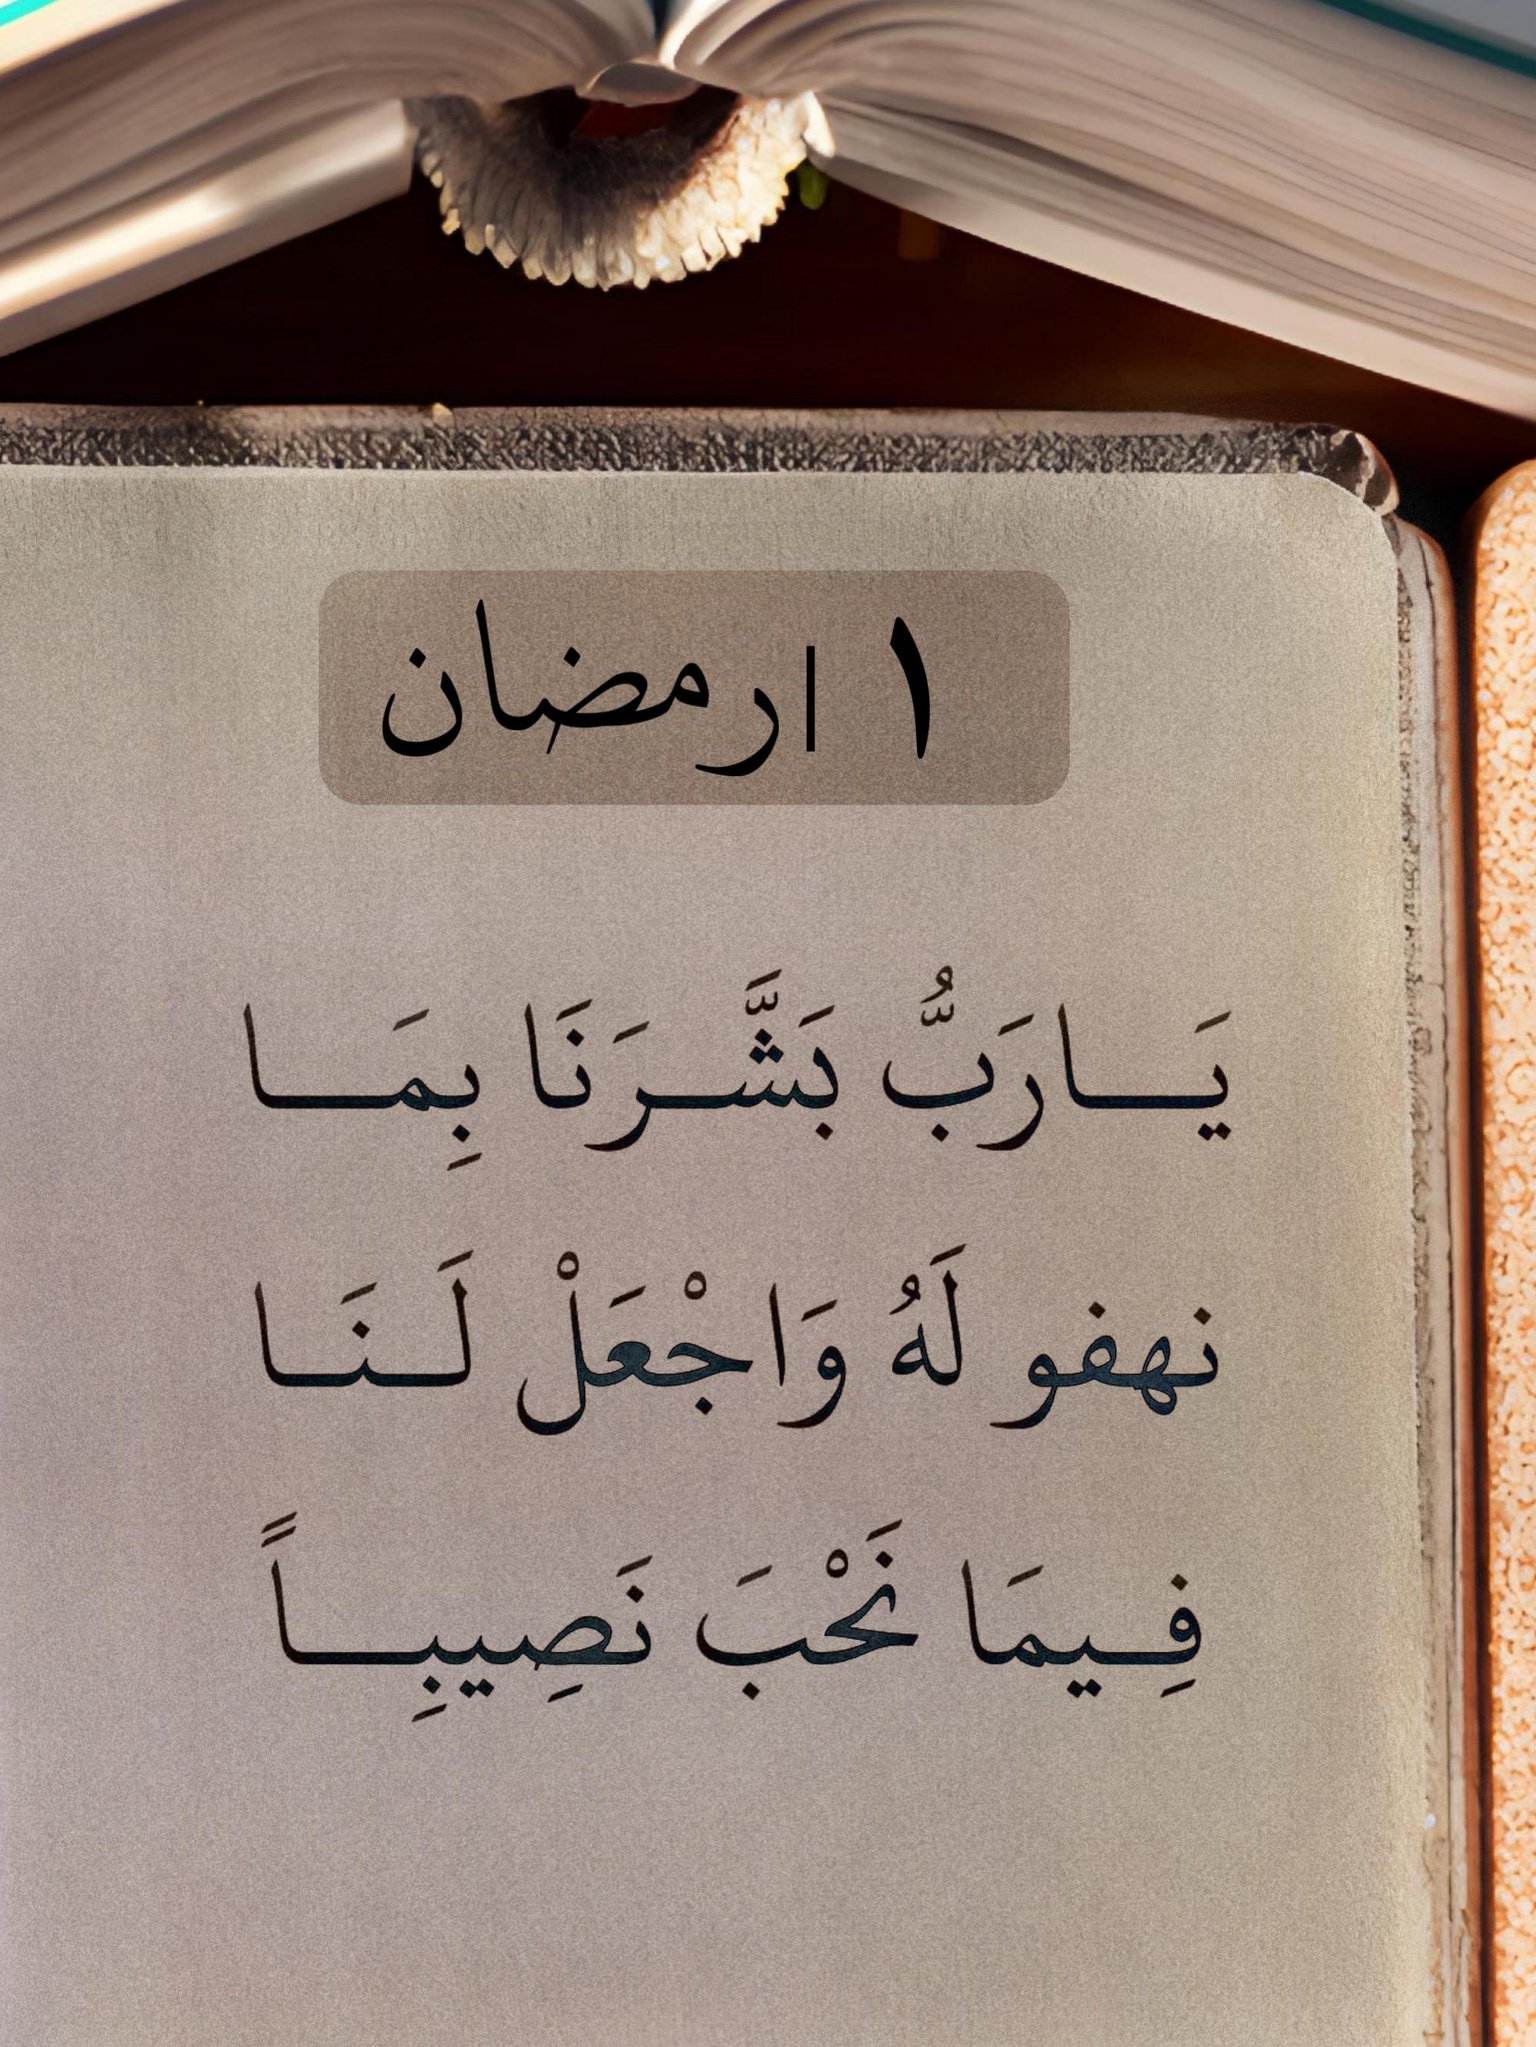 ١ |رمضان
يَـــارَبُّ بَشَّـــرَنَا بِمَـــا
نهفو لَهُ وَاجْعَلْ لَـنَـا
فِـيمَا نَحْبَ نَصِيبِـــاً